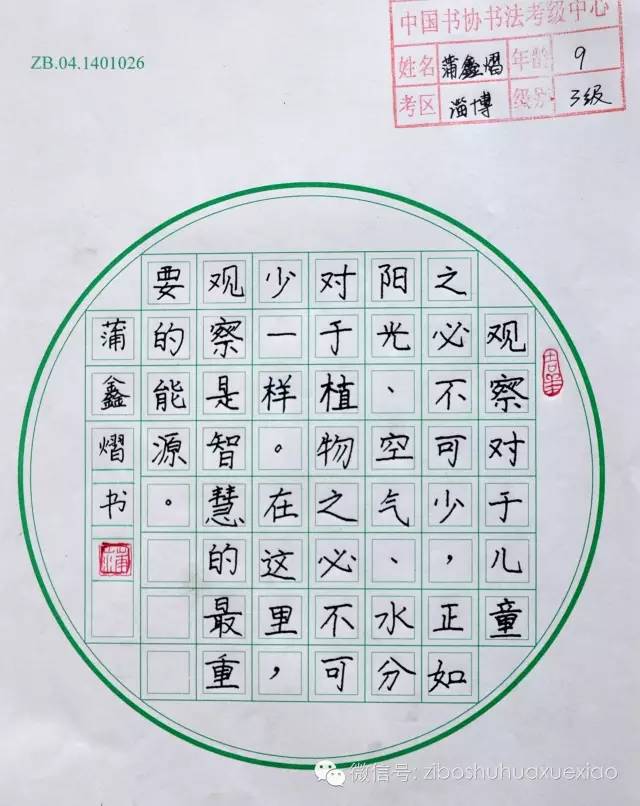 ZB.04.1401026
中国书协书法考级中心
姓名 蒲鑫熠 年龄 9
考区 淄博 级别 3级
观察对于儿童
之必不可少，正如
阳光、空气、水分
对于植物之必不可
少一样。在这里，
观察是智慧的最重
要的能源。
蒲鑫熠书
微信号: ziboshuhuaxuexiao